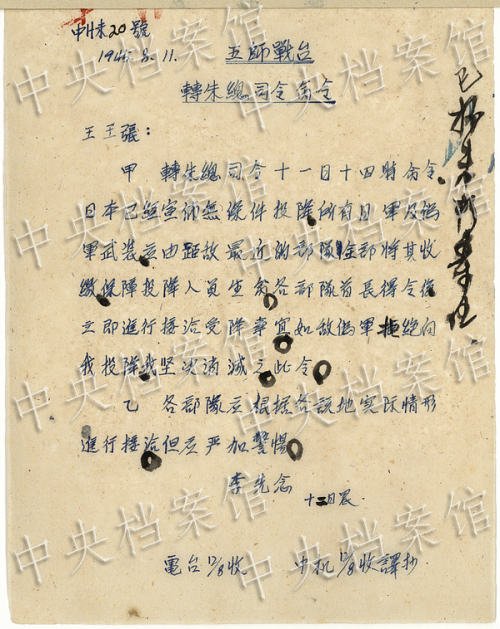 申H未20號
1945.8.11.
五師戰台
轉朱總司令命令
王王張：
甲 轉朱總司令十一日十四時命令
日本已經宣佈無條件投降所有日軍及偽
軍武裝应由距敌最近的部隊全部將其收
繳保障投降人員生命各部隊首長得令後
立即進行接洽受降事宜如敌偽軍拒絕向
我投降我坚决消滅之此令
乙 各部隊应根据各該地实际情形
進行接洽但应严加警惕
李先念
十二日晨
電台12/8收 中机12/8收譯抄
已抄
中央档案馆